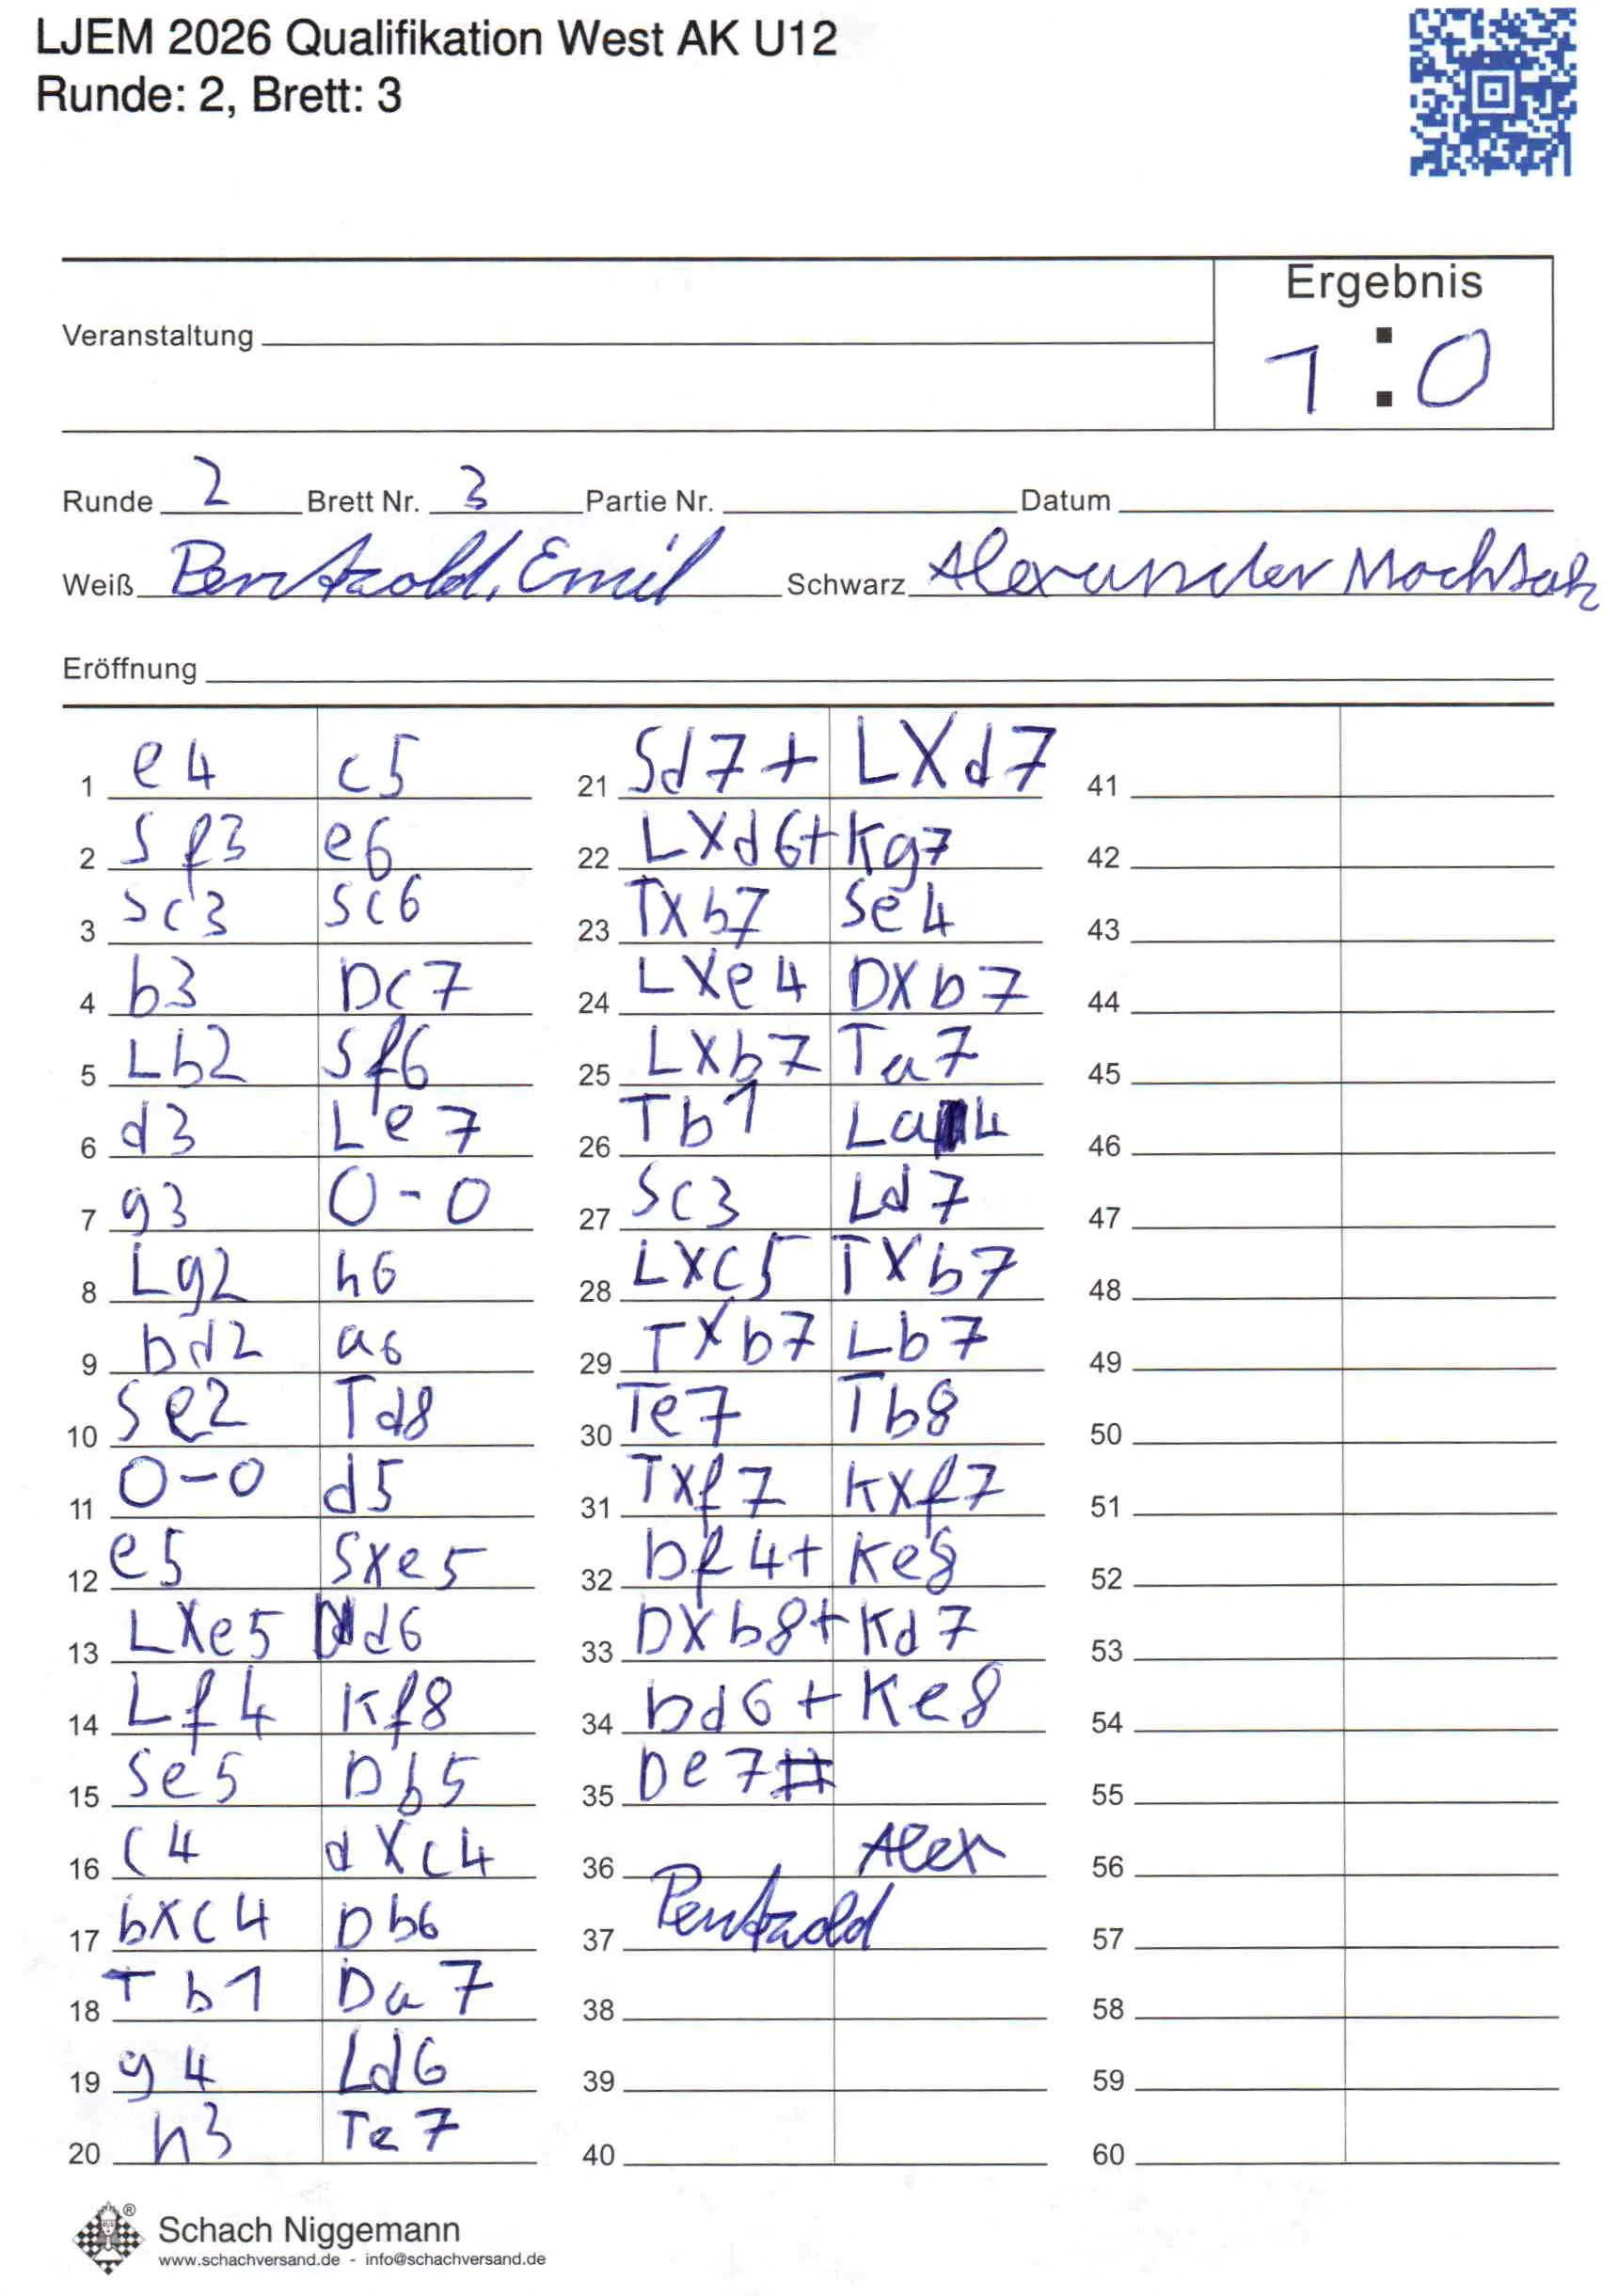 LJEM 2026 Qualifikation West AK U12
Runde: 2, Brett: 3
Ergebnis
Veranstaltung
1 : 0
Runde 2 Brett Nr. 3 Partie Nr. Datum
Weiß Pentzold, Emil Schwarz Alexander
Eröffnung
1 e4 c5
2 Sf3 e6
3 Sc3 Sc6
4 b3 Dc7
5 Lb2 Sf6
6 d3 Le7
7 g3 0-0
8 Lg2 h6
9 Dd2 a6
10 Se2 Td8
11 0-0 d5
12 e5 Sxe5
13 LXe5 Dd6
14 Lf4 Kf8
15 Se5 Db5
16 c4 dXc4
17 bXc4 Db6
18 Tb1 Da7
19 g4 Ld6
20 h3 Te7
21 Sd7+ LXd7
22 LXd6+ Kg7
23 TXb7 Se4
24 LXe4 DXb7
25 LXb7 Ta7
26 Tb1 La4
27 Sc3 Ld7
28 LXc5 TXb7
29 TXb7 Lb7
30 Te7 Tb8
31 TXf7 KXf7
32 Df4+ Ke8
33 DXb8+ Kd7
34 Dd6+ Ke8
35 De7#
36 Alex
37 Pentzold
38
39
40
41
42
43
44
45
46
47
48
49
50
51
52
53
54
55
56
57
58
59
60
Schach Niggemann
www.schachversand.de - info@schachversand.de